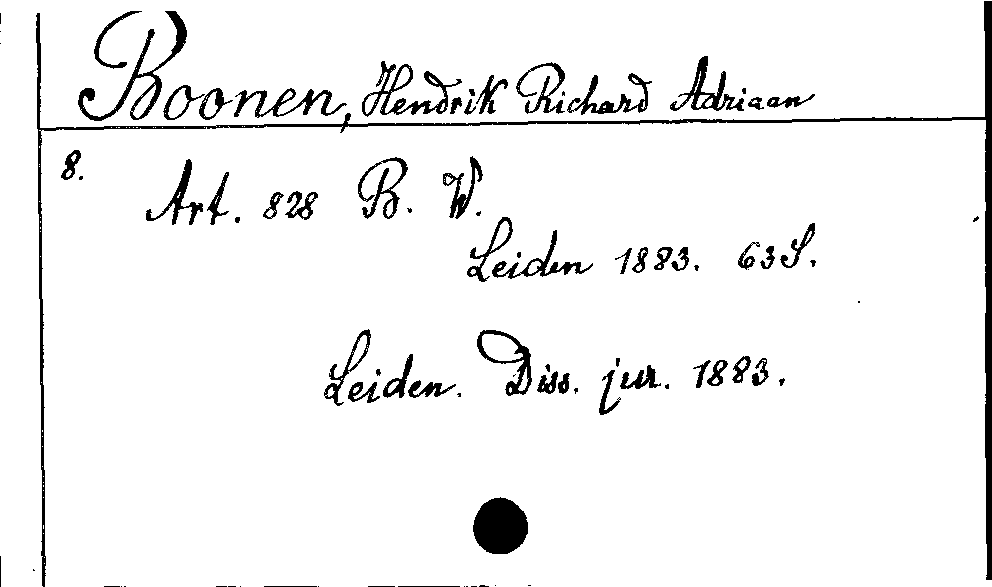 Boonen, Hendrik Richard Adriaan
8.
Art. 828 B. W.
Leiden 1883. 63 S.
Leiden. Diss. jur. 1883.